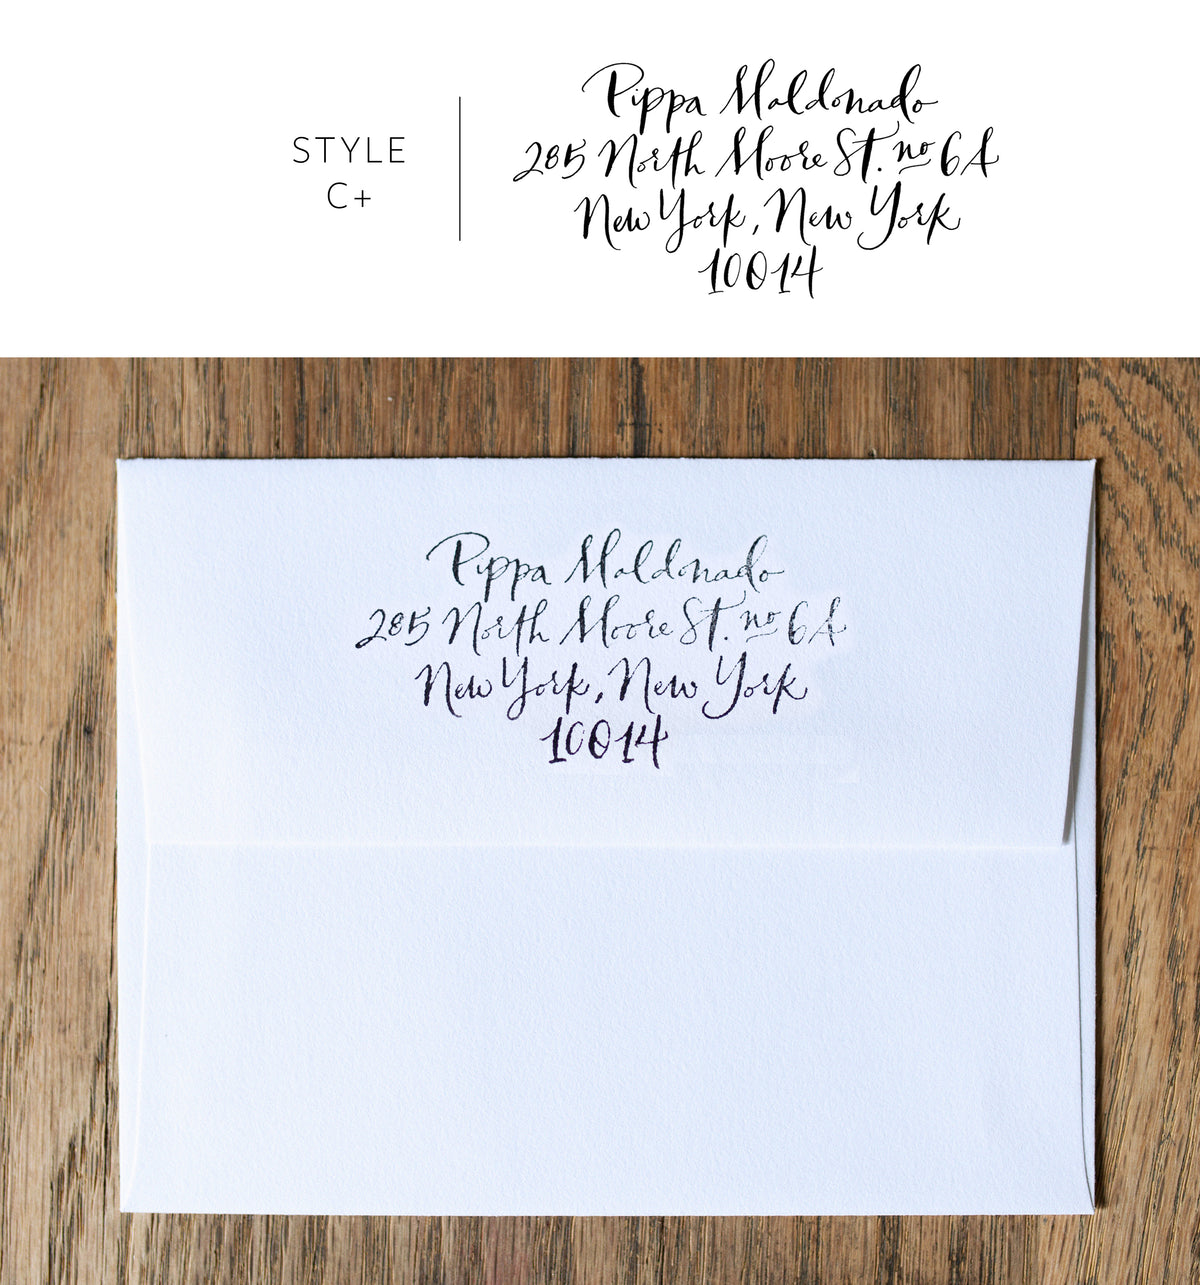 STYLE
C+
Pippa Maldonado
285 North Moore St. no 6A
New York, New York
10014
Pippa Maldonado
285 North Moore St. no 6A
New York, New York
10014